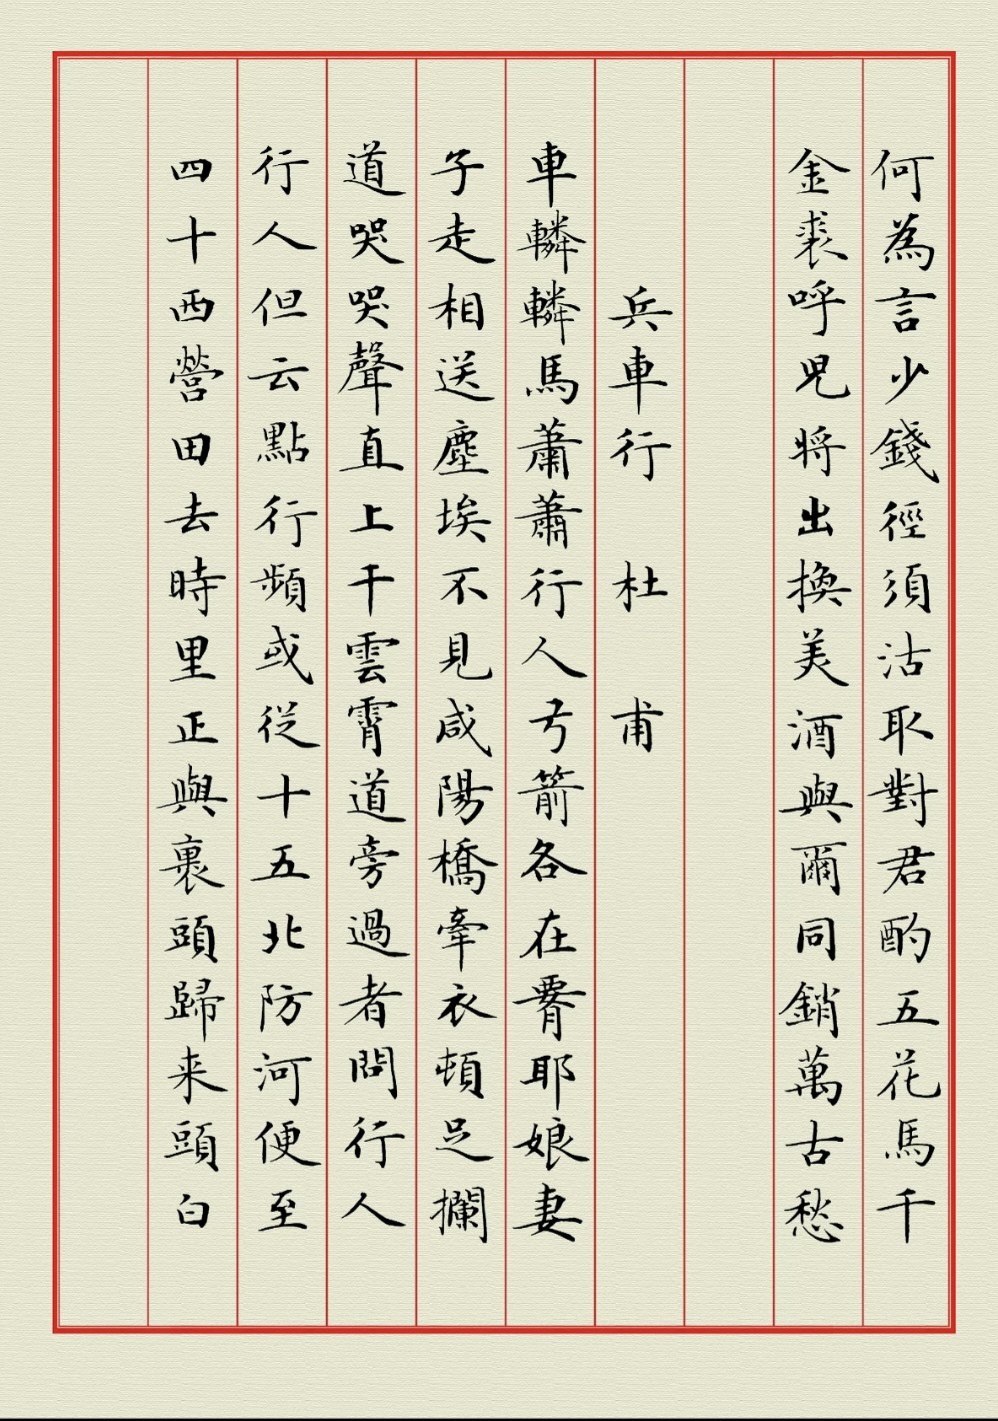 何為言少錢徑須沽取對君酌五花馬千
金裘呼兒將出換美酒與爾同銷萬古愁
兵車行 杜 甫
車轔轔馬蕭蕭行人弓箭各在署耶娘妻
子走相送塵埃不見咸陽橋牽衣頓足攔
道哭哭聲直上干雲霄道旁過者問行人
行人但云點行頻或從十五北防河便至
四十西營田去時里正與裹頭歸来頭白